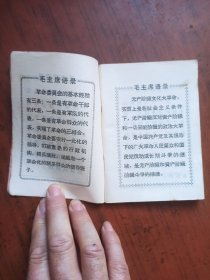 毛主席语录
革命委员会的基本经验
有三条：一条是有革命干部
的代表，一条是有军队的代
表，一条是有革命群众的代
表，实现了革命的三结合。
革命委员会要实行一元化的
领导，打破重叠的行政机
构，精兵简政，组织起一个
联系群众的领导班
子。
毛主席语录
无产阶级文化大革命，
实质上是在社会主义条件
下，无产阶级反对资产阶级
和一切剥削阶级的政治大革
命，是中国共产党及其领导
下的广大革命人民群众和国
民党反动派长期斗争的继
续，是无产阶级和资产阶级
阶级斗争的继续。